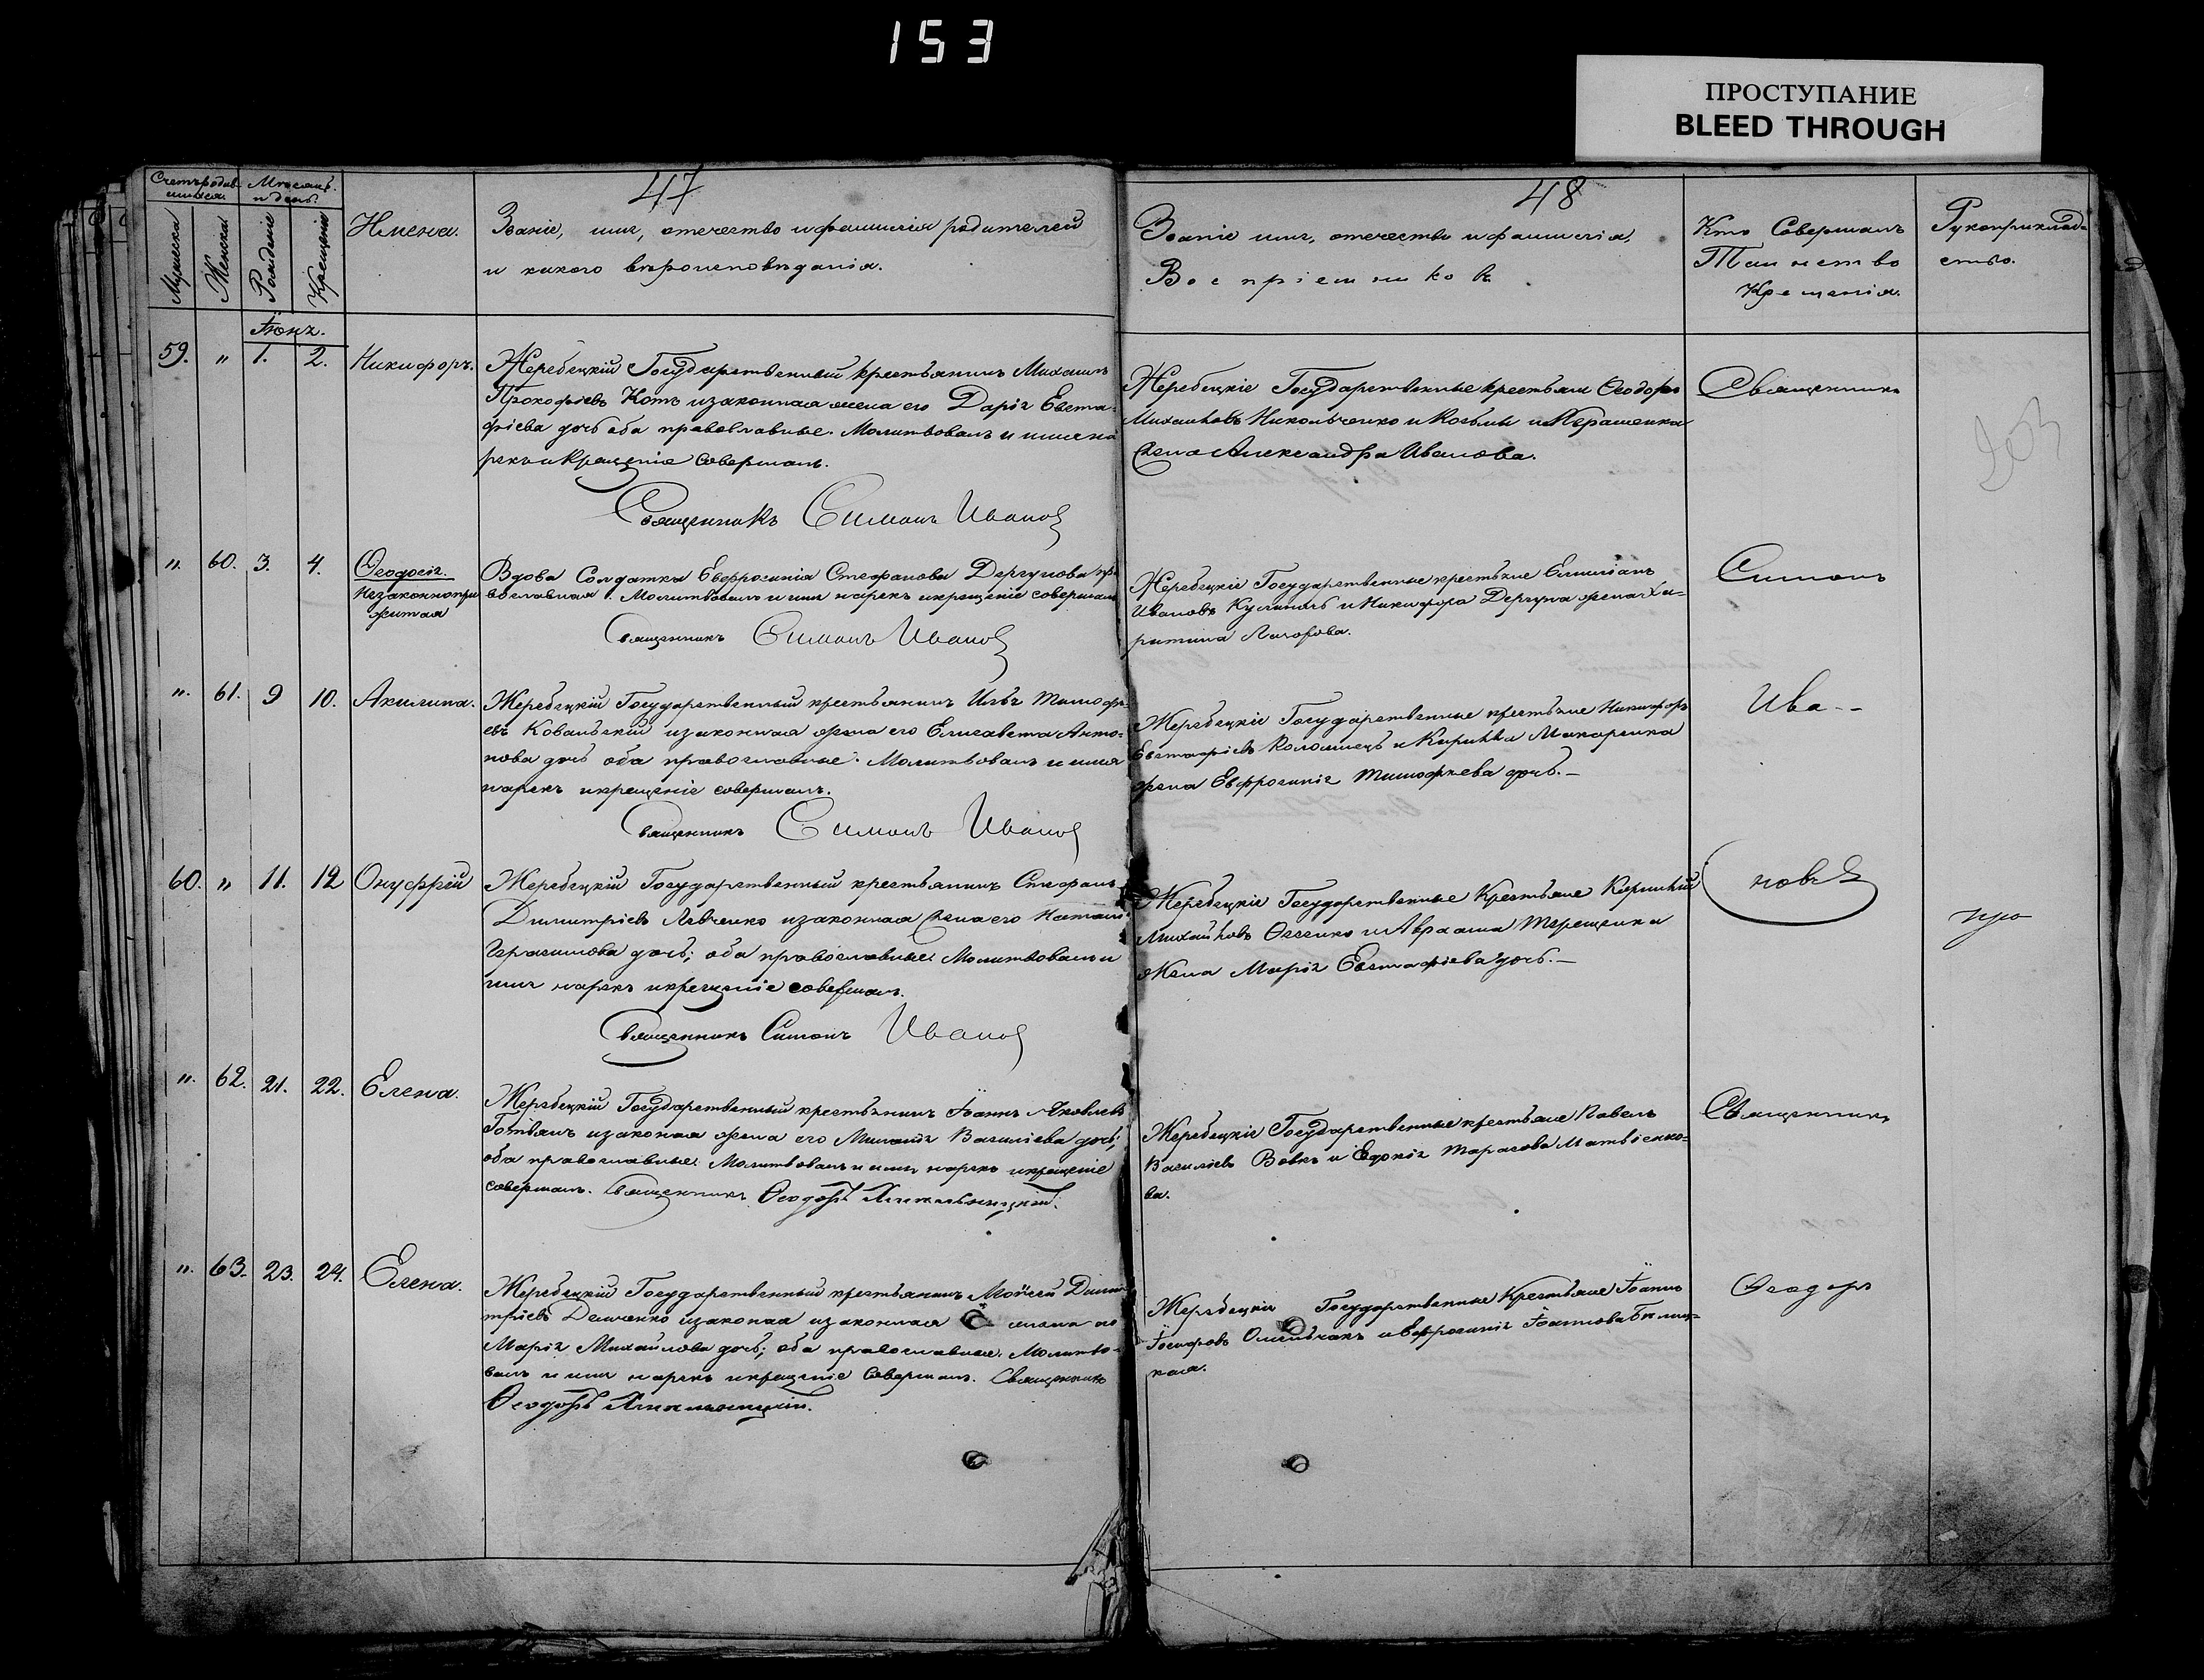 153
ПРОСТУПАНИЕ
BLEED THROUGH
47
Счетъ родив-
шихся.
Мѣсяцъ
и день.
Мужеска
Женска
Рожденіе
Крещеніе
Имена.
Званіе, имя, отечество и фамилія родителей
и какого вѣроисповѣданія.
Іюнь.
59. " 1. 2. Никифоръ.
Жеребецкій Государственный крестьянинъ Михаилъ
Прокофіевъ Котъ и законная жена его Дарія Евста-
фіева дочь оба православные. Молитвовалъ и имя на
рекъ и Крещеніе совершалъ.
Священникъ Симонъ Иванов
" 60. 3. 4. Ѳеодосія.
незаконнопри
житая
Вдова Солдатка Евфросинія Стефанова Дергунова пра
вославная. Молитвовалъ и имя нарекъ и крещеніе совершалъ
Священникъ Симонъ Иванов
" 61. 9 10. Акилина.
Жеребецкій Государственный крестьянинъ Илья Тимофе
евъ Ковальскій и законная жена его Елисавета Анто-
нова дочь оба православные. Молитвовалъ и имя
нарекъ и крещеніе совершалъ.
Священникъ Симонъ Иванов
60. " 11. 12 Онуфрій
Жеребецкій Государственный крестьянинъ Стефанъ
Димитріевъ Левченко и законная жена его
Герасимова дочь; оба православные. Молитвовалъ и
имя нарекъ и крещеніе совершалъ.
Священникъ Симонъ Иванов
" 62. 21. 22. Елена.
Жеребецкій Государственный крестьянинъ Іоаннъ Яковлевъ
и законая жена его Василіева дочь;
оба православные. Молитвовалъ и имя нарекъ и крещеніе
совершалъ. Священникъ Ѳеодоръ
" 63. 23. 24. Елена.
Жеребецкій Государственный крестьянинъ Моисей Дими
тріевъ Демченко и законая и законная жена его
Марія Михайлова дочь; оба православные. Молитво-
валъ и имя нарекъ и крещеніе совершалъ. Священникъ
Ѳеодоръ
48
Званіе имя, отечество и фамилія,
Воспріемниковъ.
Кто Совершалъ
Таинство
Крещенія.
Рукоприклад
ство.
Жеребецкіе Государственные крестьяне Ѳеодоръ
Михайловъ Никольченко и Козьмы
жена Александра Иванова.
Священникъ
203
Жеребецкіе Государственные крестьяне Емиліанъ
Ивановъ и Никифора Дергуна жена Ха-
ритина
Симонъ
Жеребецкіе Государственные крестьяне Никифоръ
Евстафіевъ Коломіецъ и Кирилла Макаренка
жена Евфросинія Тимофеева дочь.—
Ива--
Жеребецкіе Государственные Крестьяне Кириллъ
Михайловъ и Авраама Терещенка
жена Марія Евстафіева дочь.—
новъ
про
Жеребецкіе Государственные крестьяне Павелъ
Василіевъ Вовкъ и Евдокія Тарасова Матвіенко-
ва.
Священникъ
Жеребецкіе Государственные Крестьяне Іоаннъ
Іосифовъ и Евфросинія Іоаннова
кая.
Ѳеодоръ